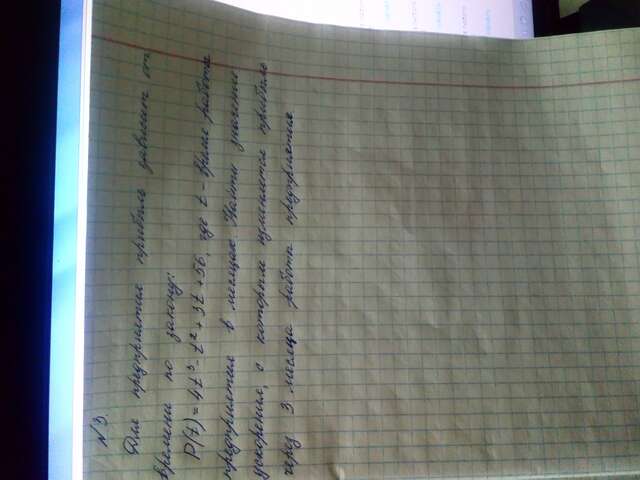 № 3.
Для предприятия прибыль зависит от
времени по закону:
P(t) = 4t³ - t² + 3t + 56, где t - время работы
предприятия в месяцах. Найти значение
ускорения, с которым изменяется прибыль
через 3 месяца работы предприятия